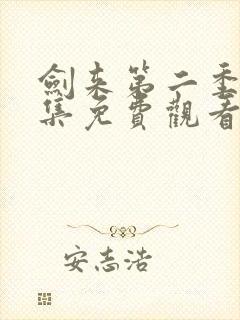 劍来第二季
集免費觀看
安志浩